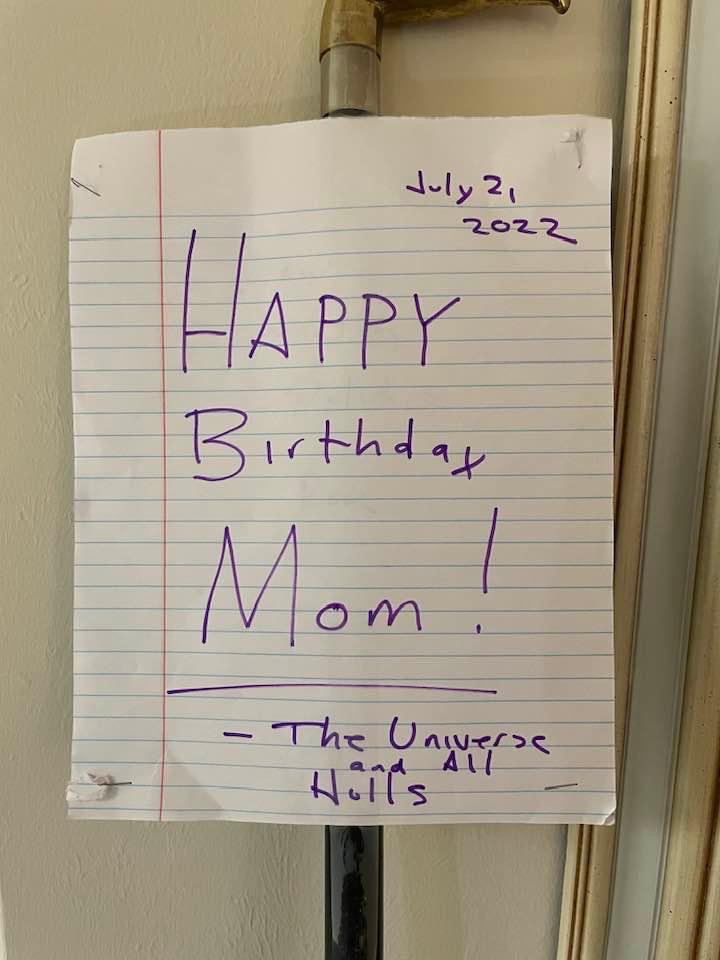 July 21
2022
HAPPY
Birthday
Mom!
- The Universe
and All
Hulls